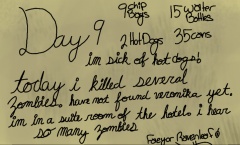 Day 9
9 chip Bags
15 Water Bottles
2 Hot Dogs
35 cans
im sick of hot dogs!
today i killed several
zombies. have not found veronika yet.
im in a suite room of the hotel. i hear
so many zombies